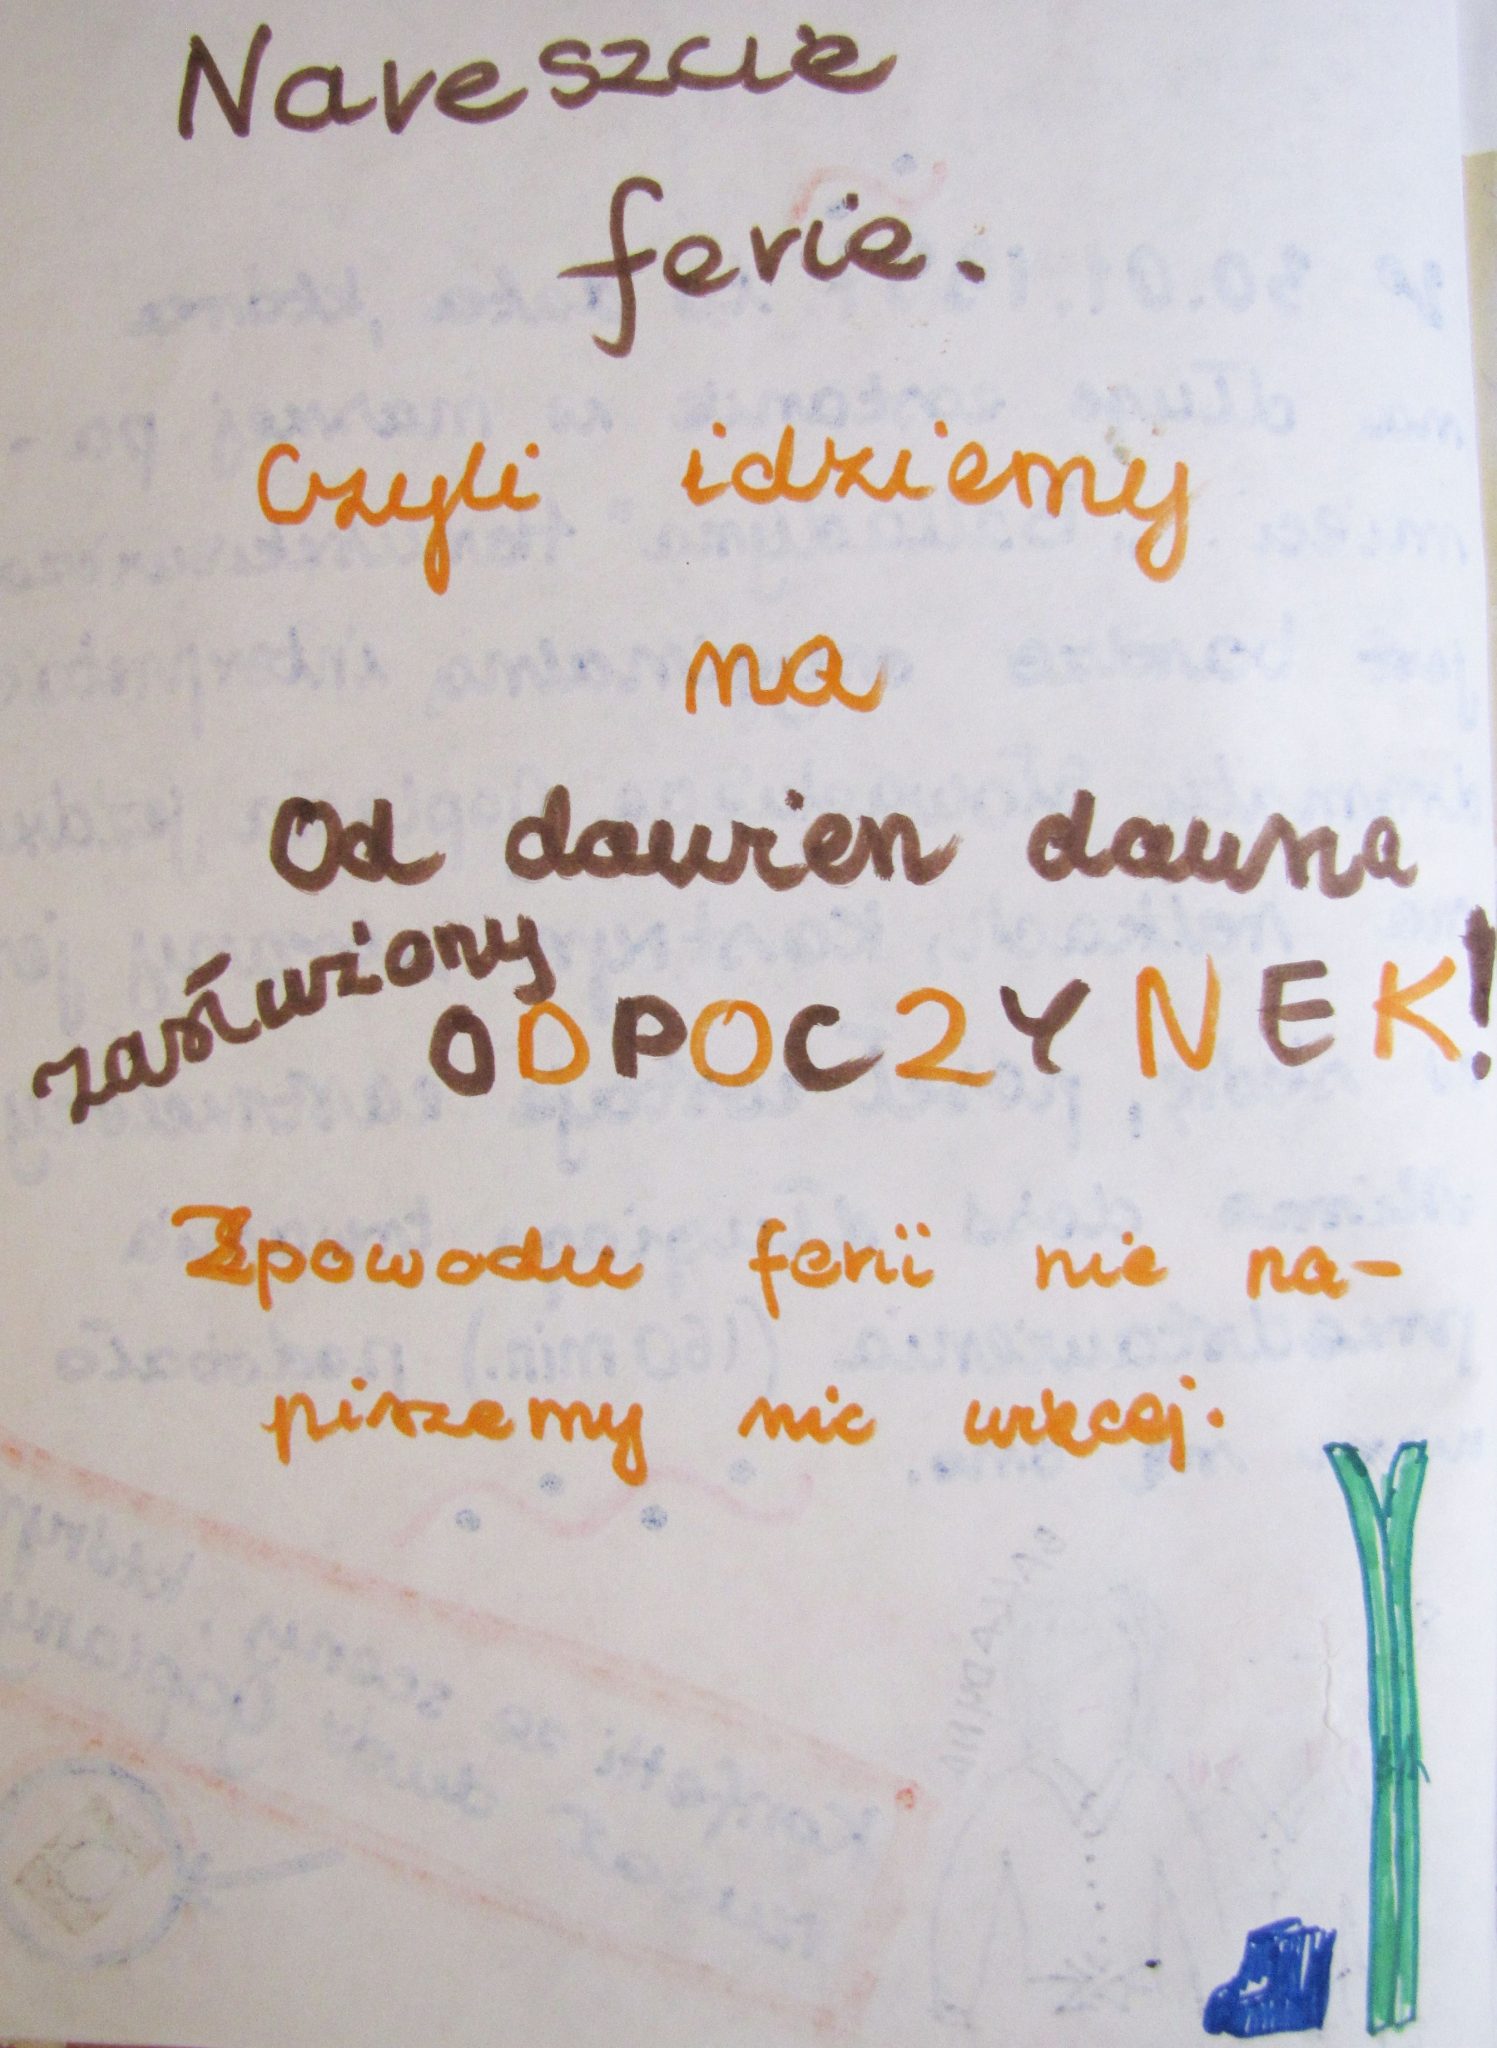 Nareszcie
ferie.
Czyli idziemy
na
Od dawien dawna
zasłużony
ODPOCZYNEK!
Z powodu ferii nie na-
piszemy nic więcej.